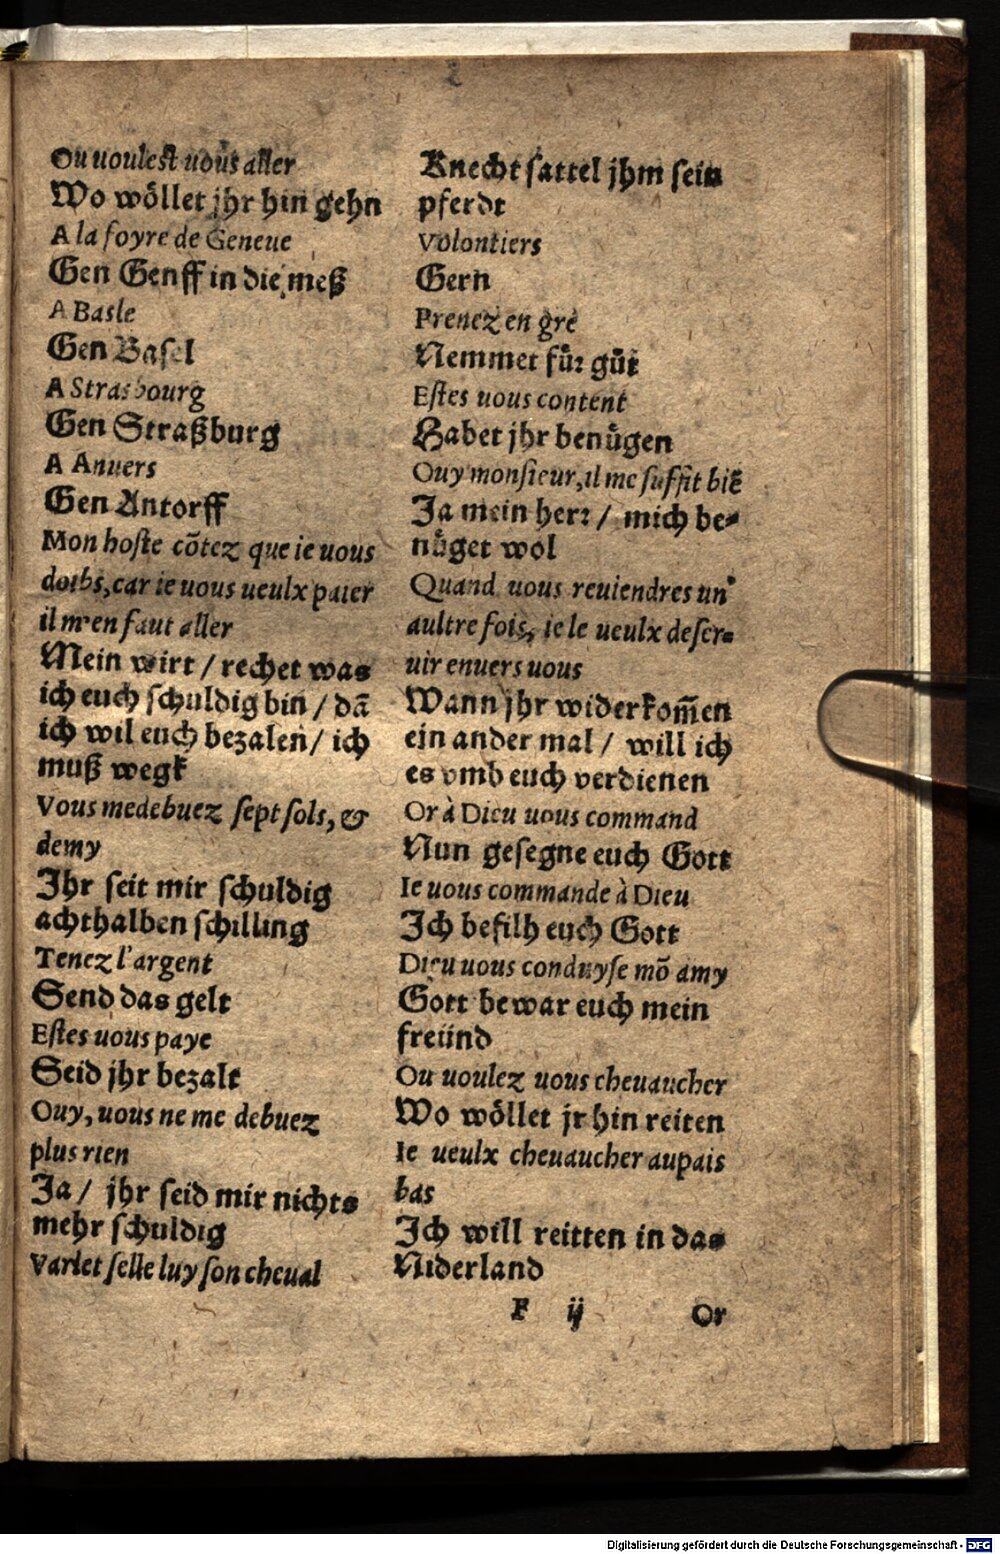 Ou uoulest uous aller
Wo woͤllet jhr hin gehn
A la foyre de Geneue
Gen Genff in die meß
A Basle
Gen Basel
A Strasbourg
Gen Straßburg
A Anuers
Gen Antorff
Mon hoste cõtez que ie uous
doibs, car ie uous ueulx paier
il m'en faut aller
Mein wirt / rechet was
ich euch schuldig bin / dañ
ich wil euch bezalen / ich
muß wegk
Vous me debuez sept sols, &
demy
Jhr seit mir schuldig
achthalben schilling
Tenez l'argent
Send das gelt
Estes uous paye
Seid jhr bezalt
Ouy, uous ne me debuez
plus rien
Ja / jhr seid mir nichts
mehr schuldig
Varlet selle luy son cheual
Knecht sattel jhm sein
pferdt
Volontiers
Gern
Prenez en gré
Nemmet fuͤr guͤt
Estes uous content
Habet jhr benuͤgen
Ouy monsieur, il me suffit biẽ
Ja mein herr / mich be-
nuͤget wol
Quand uous reuiendres un'
aultre fois, ie le ueulx deser-
uir enuers uous
Wann jhr widerkom̃en
ein ander mal / will ich
es vmb euch verdienen
Or à Dieu uous command
Nun gesegne euch Gott
Ie uous commande à Dieu
Ich befilh euch Gott
Dieu uous conduyse mõ amy
Gott bewar euch mein
freünd
Ou uoulez uous cheuaucher
Wo woͤllet jr hin reiten
Ie ueulx cheuaucher au pais
bas
Ich will reitten in das
Niderland
F ij Or
Digitalisierung gefördert durch die Deutsche Forschungsgemeinschaft - DFG